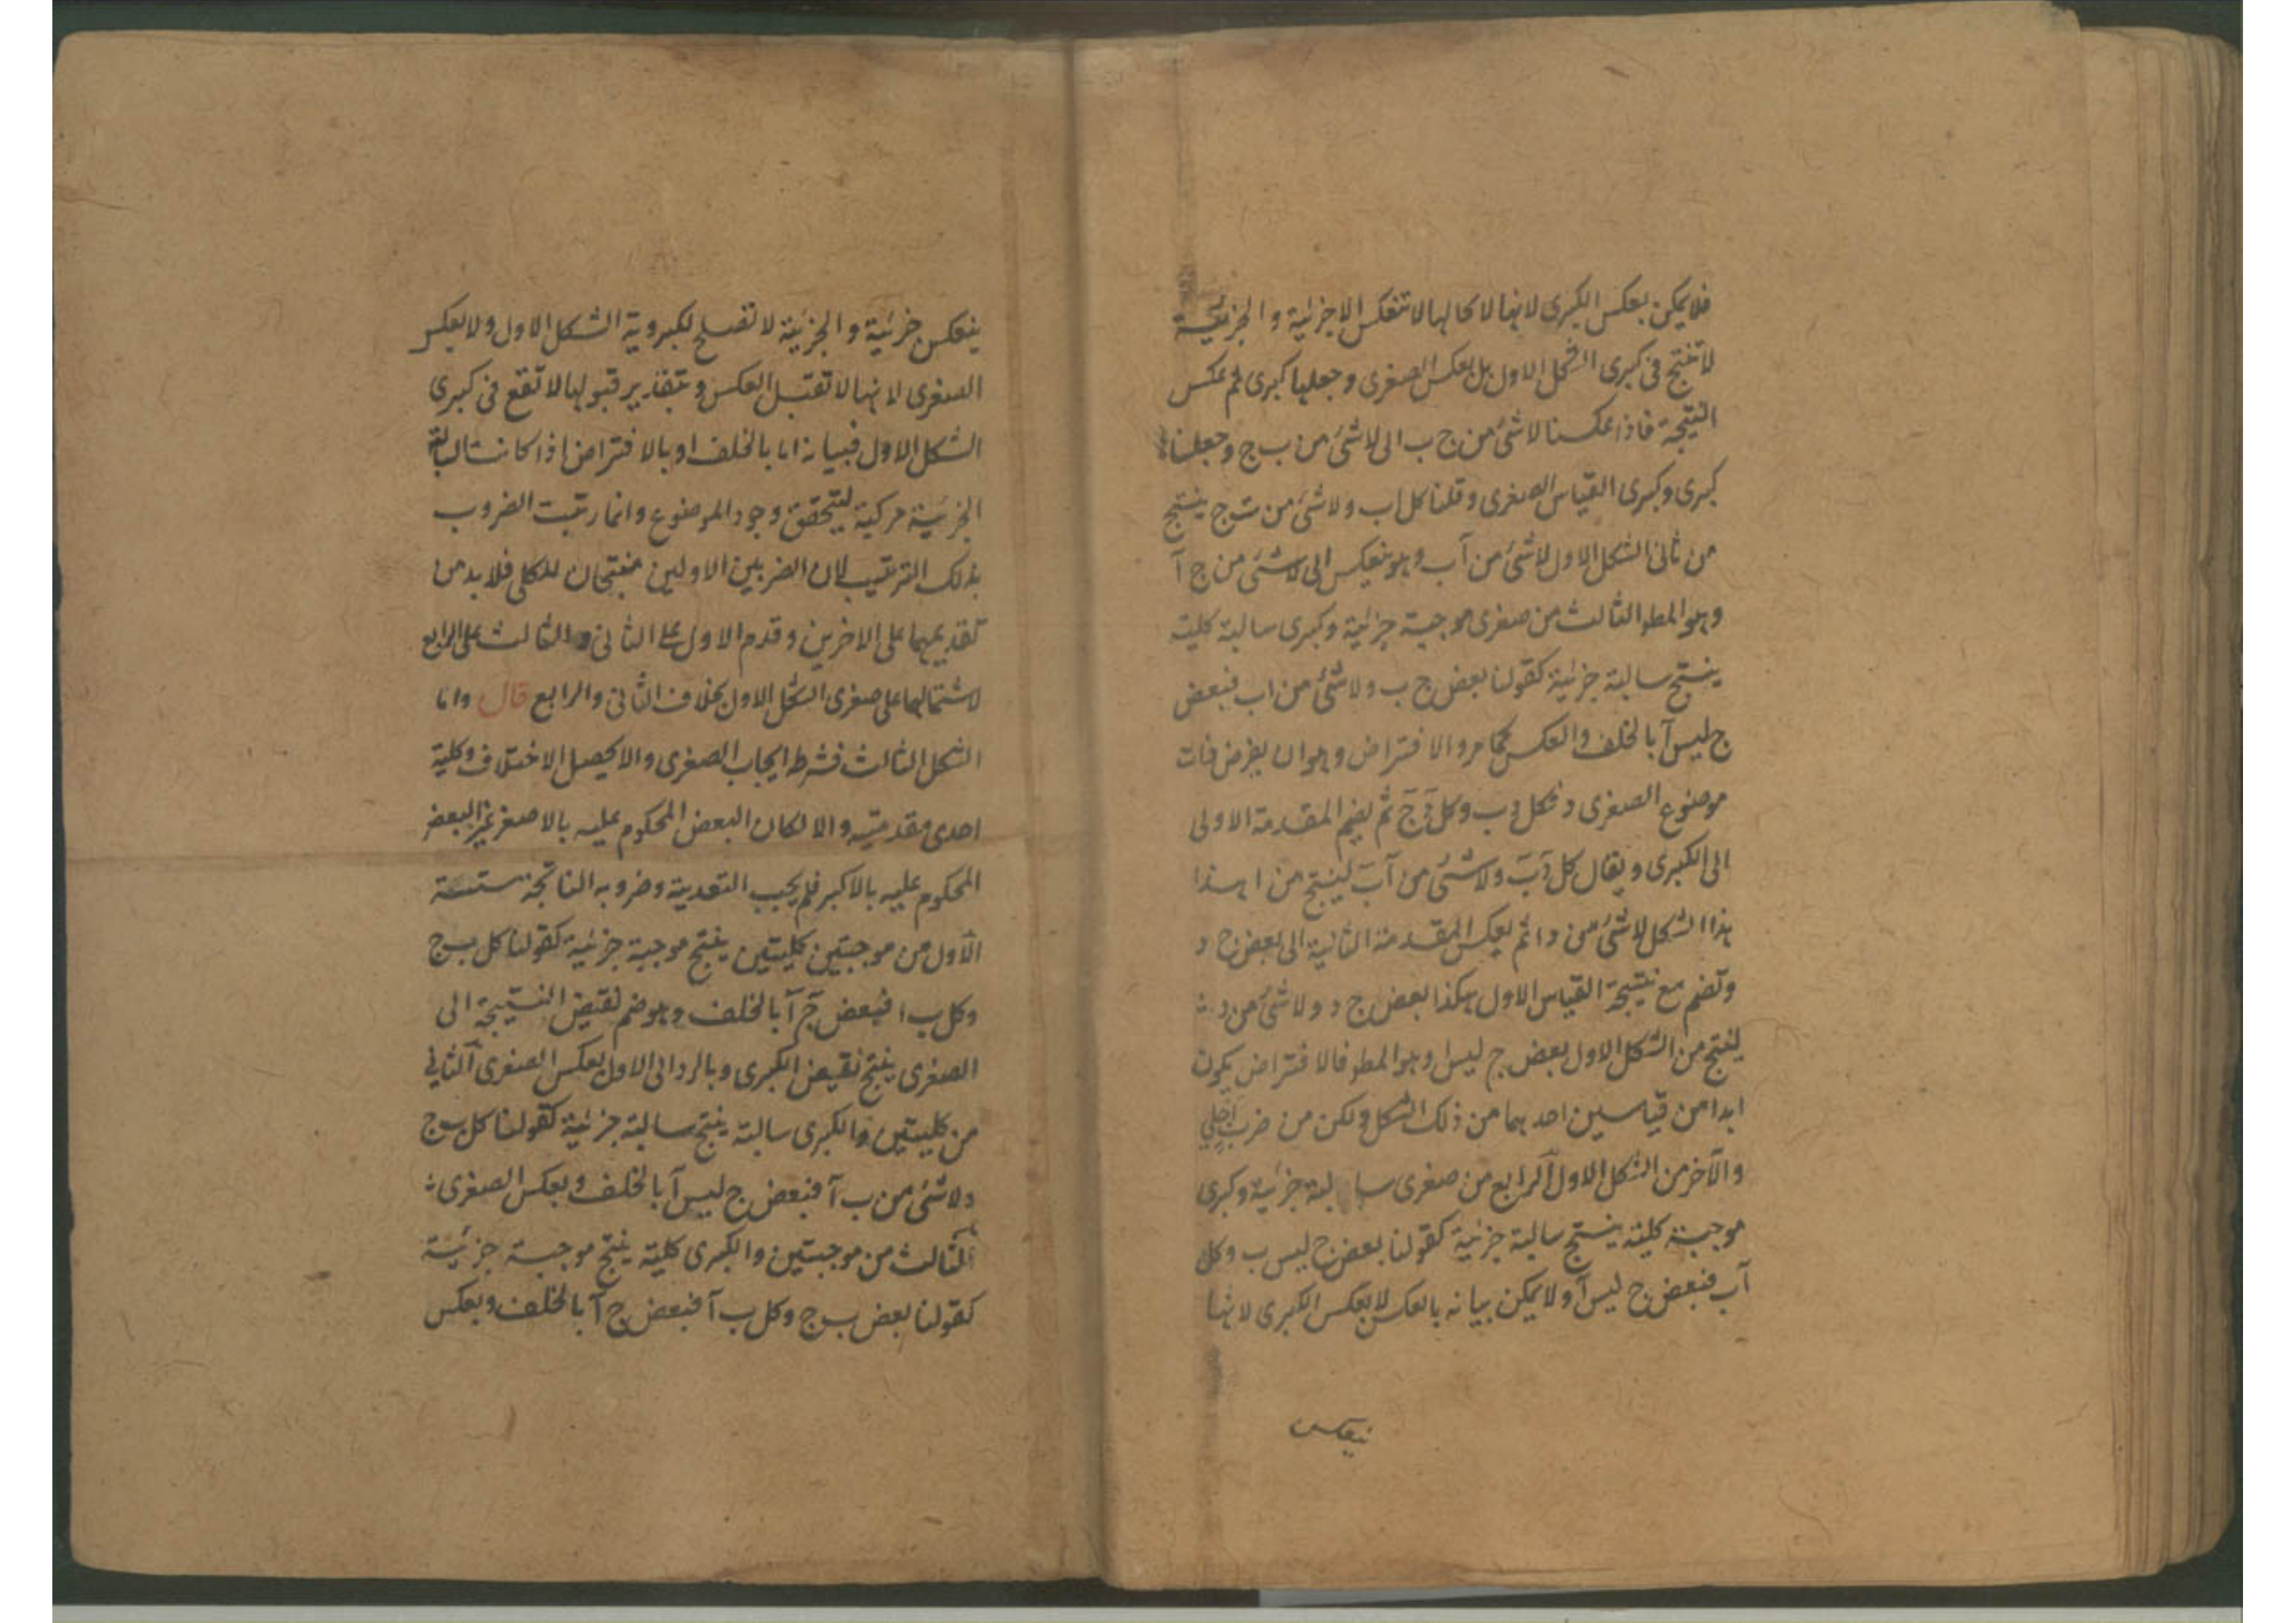 فلا يمكن بعكس الكبرى لانها لا كالها لا تنعكس الا جزئية و الجزئية
لا تنتج فى كبرى الشكل الاول بل بعكس الصغرى و جعلها كبرى ثم عكس
النتيجة فاذا عكسنا لا شئ من ج ب الى لا شئ من ب ج و جعلناها
كبرى و كبرى القياس الصغرى و قلنا كل اب و لا شئ من ب ج ينتج
من ثانى الشكل الاول لا شئ من آب و هو ينعكس الى لا شئ من ج آ
و هو المط الثالث من صغرى موجبة جزئية و كبرى سالبة كلية
ينتج سالبة جزئية كقولنا بعض ج ب و لا شئ من اب فبعض
ج ليس آ بالخلف و العكس كما مر و الافتراض و هو ان يفرض ذات
موضوع الصغرى د فكل د ب و كل د ج ثم يضم المقدمة الاولى
الى الكبرى و يقال كل د ب و لا شئ من آب لينتج من اهذا
هذا الشكل لا شئ من د ا ثم بعكس المقدمة الثانية الى بعض ج د
و تضم مع نتيجة القياس الاول هكذا بعض ج د و لا شئ من د
لينتج من الشكل الاول بعض ج ليس ا و هو المط فالافتراض يكون
ابدا من قياسين احدهما من ذلك الشكل و لكن من ضرب اجلى
و الآخر من الشكل الاول الرابع من صغرى سالبة جزئية و كبرى
موجبة كلية ينتج سالبة جزئية كقولنا بعض ج ليس ب و كل
آب فبعض ج ليس آ و لا يمكن بيانه بالعكس لا بعكس الكبرى لانها
ينعكس
ينعكس جزئية و الجزئية لا تصلح لكبروية الشكل الاول و لا بعكس
الصغرى لانها لا تقبل العكس و بتقدير قبولها لا تقع فى كبرى
الشكل الاول فبيانه اما بالخلف او بالافتراض اذا كانت السالبة
الجزئية مركبة ليتحقق وجود الموضوع و انما رتبت الضروب
بذلك الترتيب لان الضربين الاولين منتجان للكلى فلا بد من
تقديمهما على الاخرين و قدم الاول على الثانى و الثالث على الرابع
لاشتمالهما على صغرى الشكل الاول بخلاف الثانى و الرابع قال و اما
الشكل الثالث فشرط ايجاب الصغرى و الا يحصل الاختلاف و كلية
احدى مقدمتيه و الا لكان البعض المحكوم عليه بالاصغر غير البعض
المحكوم عليه بالاكبر فلم يجب التعدية و ضروبه الناتجة ستة
الآول من موجبتين كليتين ينتج موجبة جزئية كقولنا كل ب ج
و كل ب ا فبعض ج آ بالخلف و هو ضم نقيض النتيجة الى
الصغرى ينتج نقيض الكبرى و بالرد الى الاول بعكس الصغرى الثانى
من كليتين و الكبرى سالبة ينتج سالبة جزئية كقولنا كل ب ج
و لا شئ من ب آ فبعض ج ليس آ بالخلف و بعكس الصغرى
الثالث من موجبتين و الكبرى كلية ينتج موجبة جزئية
كقولنا بعض ب ج و كل ب آ فبعض ج آ بالخلف و بعكس